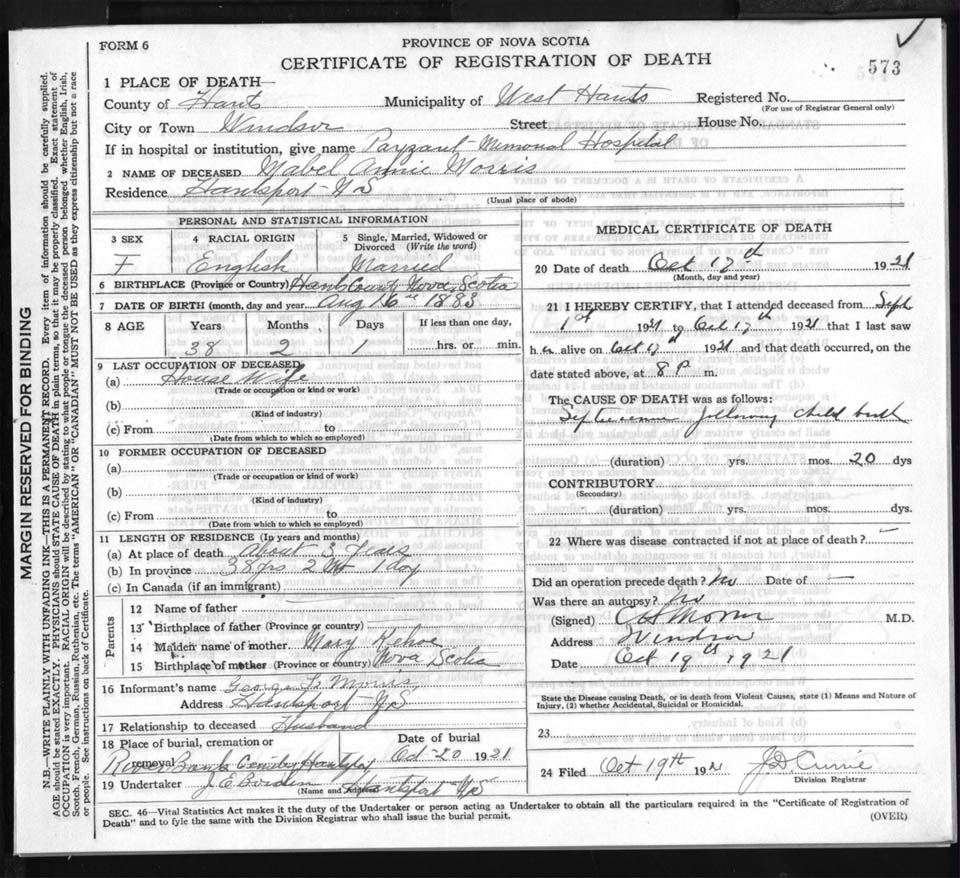 FORM 6
PROVINCE OF NOVA SCOTIA
CERTIFICATE OF REGISTRATION OF DEATH
573
1 PLACE OF DEATH—
County of Hants Municipality of West Hants Registered No.
(For use of Registrar General only)
City or Town Windsor Street House No.
If in hospital or institution, give name Payzant Memorial Hospital
2 NAME OF DECEASED Mabel Annie Morris
Residence Hantsport N S
(Usual place of abode)
PERSONAL AND STATISTICAL INFORMATION
3 SEX 4 RACIAL ORIGIN 5 Single, Married, Widowed or Divorced (Write the word)
F English Married
6 BIRTHPLACE (Province or Country) Hants County Nova Scotia
7 DATE OF BIRTH (month, day and year) Aug 16 1883
8 AGE Years Months Days If less than one day,
38 2 1 hrs. or min.
9 LAST OCCUPATION OF DECEASED
(a) House Wife
(Trade or occupation or kind or work)
(b)
(Kind of industry)
(c) From to
(Date from which to which so employed)
10 FORMER OCCUPATION OF DECEASED
(a)
(Trade or occupation or kind of work)
(b)
(Kind of industry)
(c) From to
(Date from which to which so employed)
11 LENGTH OF RESIDENCE (In years and months)
(a) At place of death About 3 Years
(b) In province 38 yrs 2 Mo 1 day
(c) In Canada (if an immigrant)
Parents
12 Name of father
13 Birthplace of father (Province or country)
14 Maiden name of mother. Mary Kehoe
15 Birthplace of mother (Province or country) Nova Scotia
16 Informant's name George Morris
Address Hantsport N S
17 Relationship to deceased Husband
18 Place of burial, cremation or removal Date of burial
River Bank Cemetery Oct 20 1921
19 Undertaker J. E. Borden Hantsport N S
(Name and Address)
MEDICAL CERTIFICATE OF DEATH
20 Date of death Oct 17th 1921
(Month, day and year)
21 I HEREBY CERTIFY, that I attended deceased from Sept
1st 1921 to Oct 17th 1921 that I last saw
her alive on Oct 17th 1921 and that death occurred, on the
date stated above, at 8 P m.
The CAUSE OF DEATH was as follows:
Septicaemia following child birth
(duration) yrs. mos. 20 dys
CONTRIBUTORY
(Secondary)
(duration) yrs. mos. dys.
22 Where was disease contracted if not at place of death? —
Did an operation precede death? No Date of —
Was there an autopsy? No
(Signed) Morris M.D.
Address Windsor
Date Oct 19th 1921
State the Disease causing Death, or in death from Violent Causes, state (1) Means and Nature of
Injury, (2) whether Accidental, Suicidal or Homicidal.
23
24 Filed Oct 19th 1921 J D Currie
Division Registrar
SEC. 46—Vital Statistics Act makes it the duty of the Undertaker or person acting as Undertaker to obtain all the particulars required in the "Certificate of Registration of
Death" and to fyle the same with the Division Registrar who shall issue the burial permit.
(OVER)
MARGIN RESERVED FOR BINDING
N.B.—WRITE PLAINLY WITH UNFADING INK—THIS IS A PERMANENT RECORD. Every item of information should be carefully supplied.
AGE should be stated EXACTLY. PHYSICIANS should STATE CAUSE OF DEATH in plain terms, so that it may be properly classified. Exact statement of
OCCUPATION is very important. RACIAL ORIGIN will be described by stating to what people or tongue the deceased person belonged whether English, Irish,
Scotch, French, German, Russian, Ruthenian, etc. The terms "AMERICAN" OR "CANADIAN" MUST NOT BE USED as they express citizenship but not a race
or people. See instructions on back of Certificate.